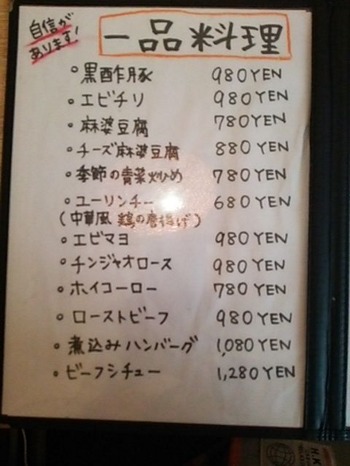 自信が
あります!
一品料理
◦黒酢豚 980YEN
◦エビチリ 980YEN
◦麻婆豆腐 780YEN
◦チーズ麻婆豆腐 880YEN
◦季節の青菜炒め 780YEN
◦ユーリンチー 680YEN
(中華風 鶏の唐揚げ)
◦エビマヨ 980YEN
◦チンジャオロース 980YEN
◦ホイコーロー 780YEN
◦ローストビーフ 980YEN
◦煮込みハンバーグ 1,080YEN
◦ビーフシチュー 1,280YEN